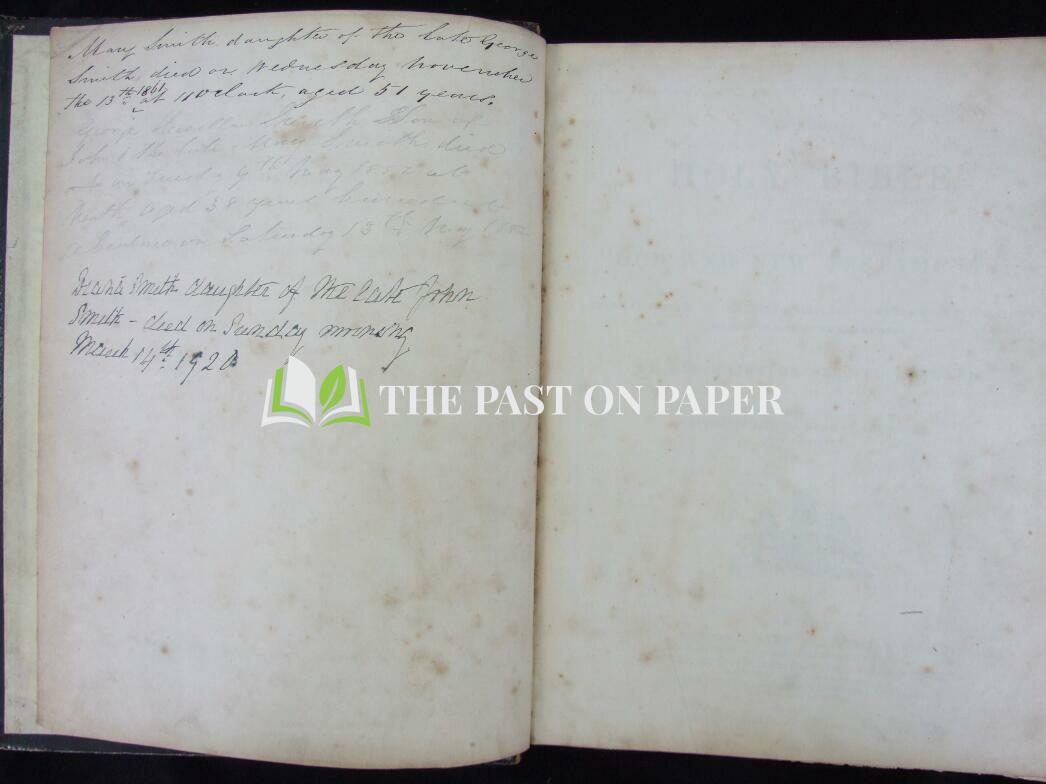 Mary Smith daughter of the late George
Smith, died on Wednesday November
the 13th 1861 at 11 oClock, aged 51 years.
George Smith Son of
John & the late Mary Smith died
on Tuesday 9th May 1882 at
aged 38 years
on Saturday 13th May 1882
Diana Smith daughter of the late John
Smith - died on Sunday morning
March 14th 1920
THE PAST ON PAPER
HOLY BIBLE